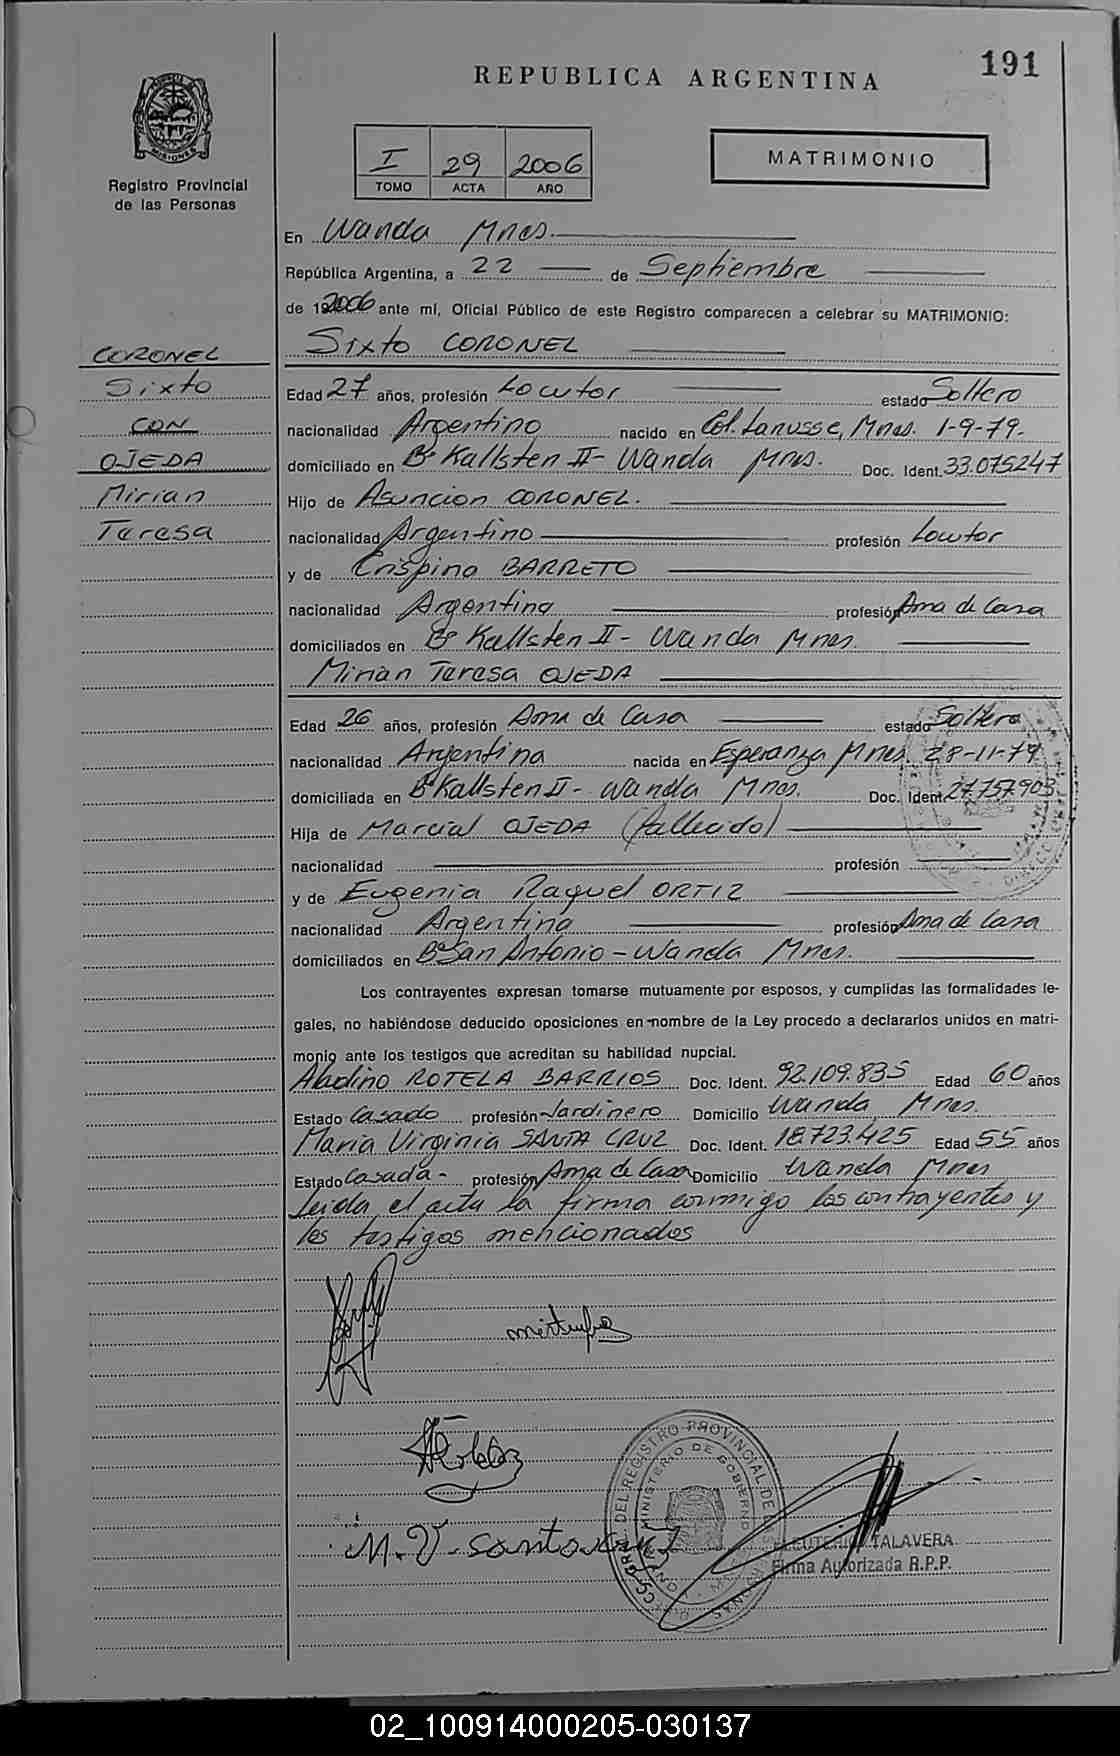 191
REPUBLICA ARGENTINA
MISIONES
Registro Provincial
de las Personas
I 29 2006
TOMO ACTA AÑO
MATRIMONIO
En Wanda Mnes.
República Argentina, a 22 de Septiembre
de 2006 ante mí, Oficial Público de este Registro comparecen a celebrar su MATRIMONIO:
CORONEL
Sixto
CON
OJEDA
Mirian
Teresa
Sixto CORONEL
Edad 27 años, profesión Locutor estado Soltero
nacionalidad Argentino nacido en Col. Lanusse, Mnes. 1-9-79.
domiciliado en Bº Kallsten II - Wanda Mnes. Doc. Ident. 33.075247
Hijo de Asuncion CORONEL.
nacionalidad Argentino profesión Locutor
y de Crispina BARRETO
nacionalidad Argentina profesión Ama de Casa
domiciliados en Bº Kallsten II - Wanda Mnes.
Mirian Teresa OJEDA
Edad 26 años, profesión Ama de Casa estado Soltera
nacionalidad Argentina nacida en Esperanza Mnes. 28-11-79
domiciliada en Bº Kallsten II - Wanda Mnes. Doc. Ident. 27.757.903
Hija de Marcial OJEDA (fallecido)
nacionalidad profesión
y de Eugenia Raquel ORTIZ
nacionalidad Argentina profesión Ama de Casa
domiciliados en Bº San Antonio - Wanda Mnes.
Los contrayentes expresan tomarse mutuamente por esposos, y cumplidas las formalidades le-
gales, no habiéndose deducido oposiciones en nombre de la Ley procedo a declararlos unidos en matri-
monio ante los testigos que acreditan su habilidad nupcial.
Aladino ROTELA BARRIOS Doc. Ident. 92.109.835 Edad 60 años
Estado Casado profesión Jardinero Domicilio Wanda Mnes.
Maria Virginia SANTA CRUZ Doc. Ident. 18.723.425 Edad 55 años
Estado Casada - profesión Ama de Casa Domicilio Wanda Mnes
Leida el acta la firma conmigo los contrayentes y
los testigos mencionados
M. V. santacruz
REGISTRO PROVINCIAL DE LAS
MINISTERIO DE GOBIERNO
ELEUTERIO TALAVERA
Firma Autorizada R.P.P.
02_100914000205-030137